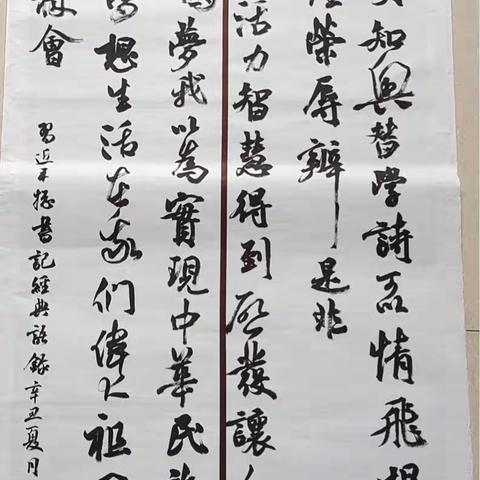 知興替學詩可以情飛揚
榮辱辨是非
活力智慧得到啟發讓
夢我以為實現中華民族
想生活在我們偉大祖
會
習近平總書記經典語錄辛丑夏月